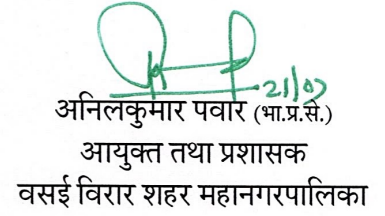 21/07
अनिलकुमार पवार (भा.प्र.से.)
आयुक्त तथा प्रशासक
वसई विरार शहर महानगरपालिका